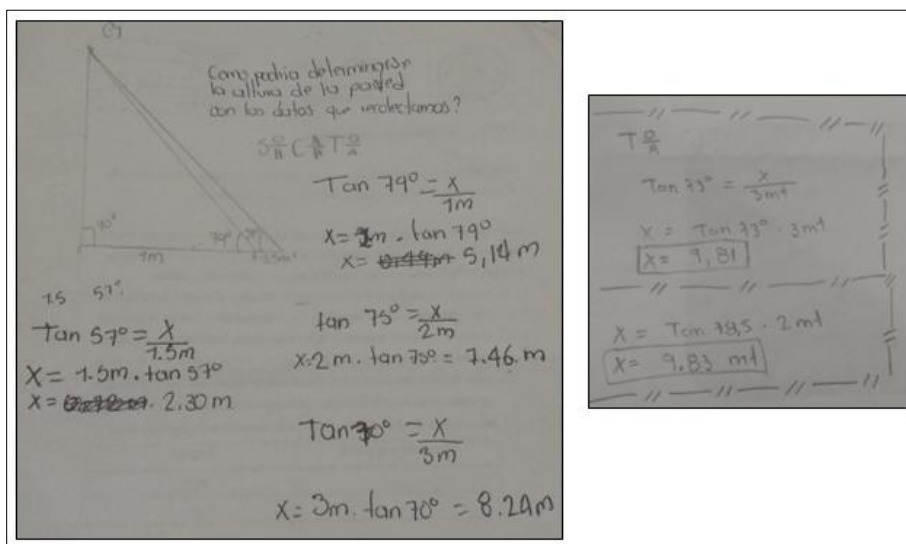 Como podria determinarse
la altura de la pared
con los datos que recolectamos?
S O/H C A/H T O/A
Tan 79° = x/1m
x = 1m . tan 79°
x = 5,14 m
90°
1m
79°
1.5m
1.5 57°
Tan 57° = x/1.5m
x = 1.5m . tan 57°
x = 2.30 m
tan 75° = x/2m
x = 2 m . tan 75° = 7.46 m
Tan 70° = x/3m
x = 3m . tan 70° = 8.24m
T O/A
Tan 73° = x/3mt
x = Tan 73° . 3mt
x = 9,81
x = Tan 78,5 . 2 mt
x = 9.83 mt